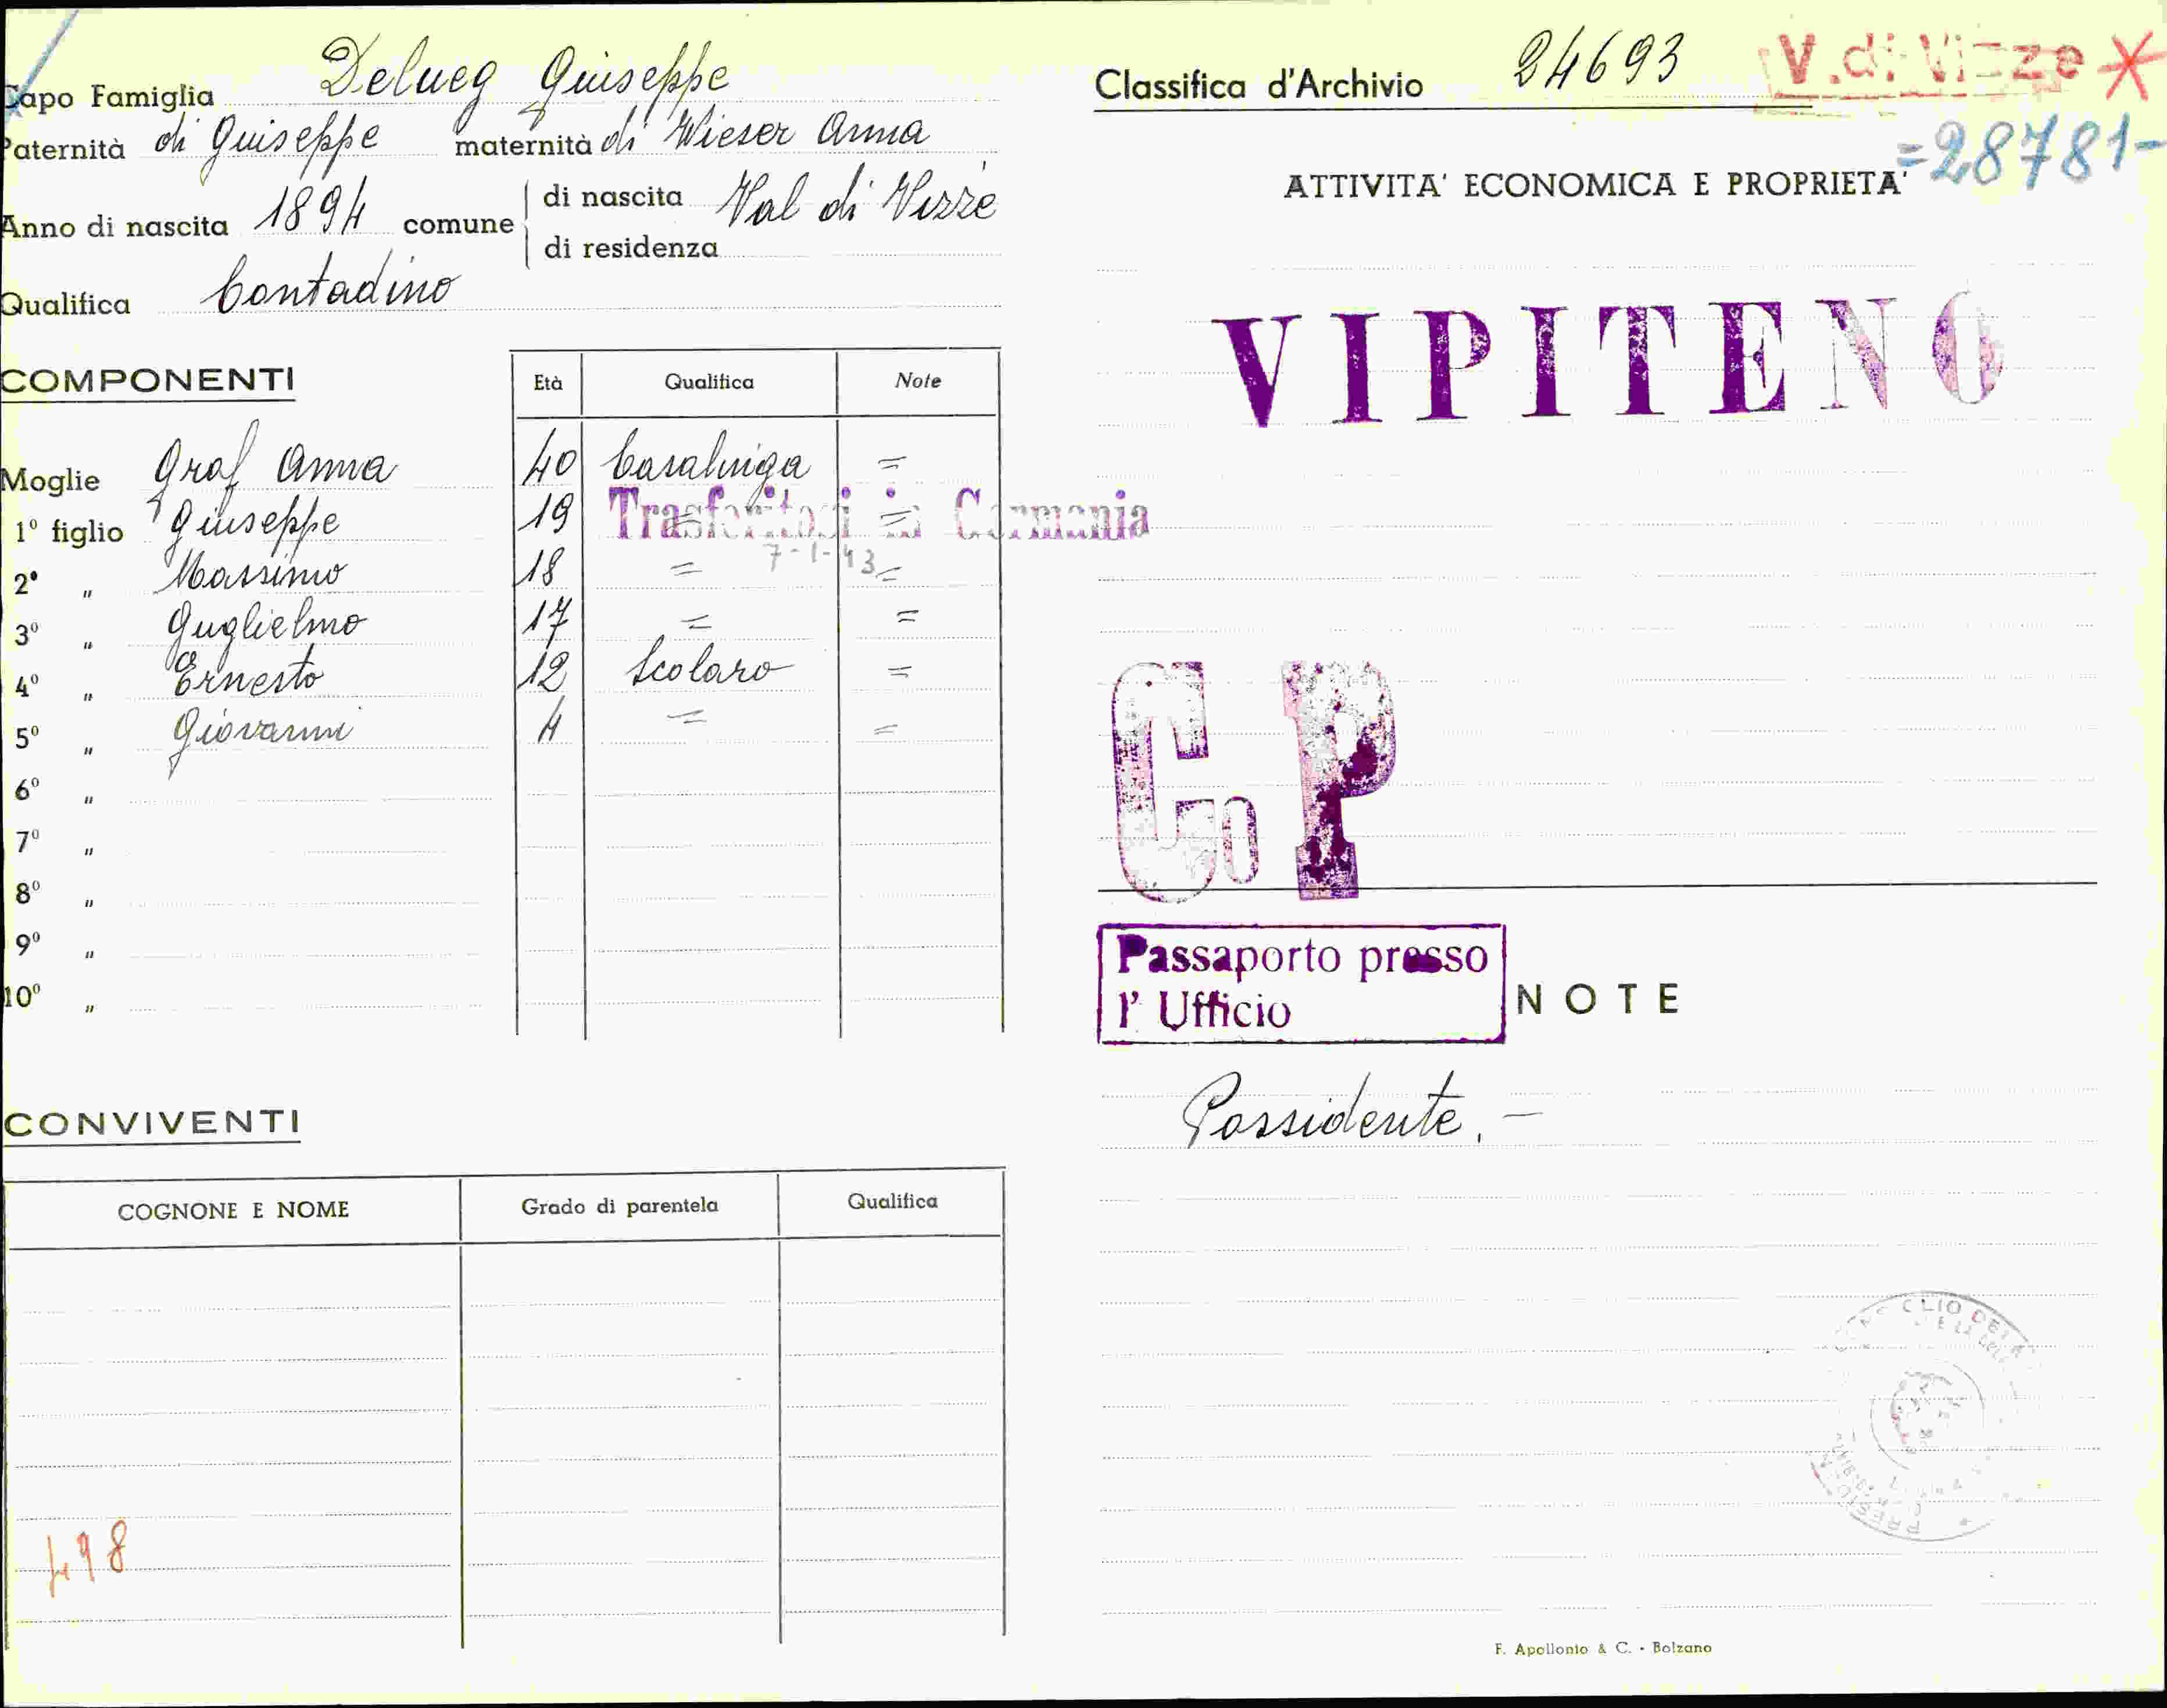 Capo Famiglia Delueg Giuseppe
Paternità di Giuseppe maternità di Wieser Anna
Anno di nascita 1894 comune di nascita Val di Vizze
di residenza
Qualifica Contadino
COMPONENTI Età Qualifica Note
Moglie Graf Anna 40 Casalinga =
1º figlio Giuseppe 19 = =
Trasferitosi in Germania
7-1-43
2º " Massimo 18 = =
3º " Guglielmo 17 = =
4º " Ernesto 12 Scolaro =
5º " Giovanni 4 = =
6º "
7º "
8º "
9º "
10º "
CONVIVENTI
COGNONE E NOME Grado di parentela Qualifica
498
Classifica d'Archivio 24693 V. di Vizze *
=28781-
ATTIVITA' ECONOMICA E PROPRIETA'
VIPITENO
Co P
Passaporto presso
l' Ufficio
NOTE
Possidente. —
F. Apollonio & C. - Bolzano